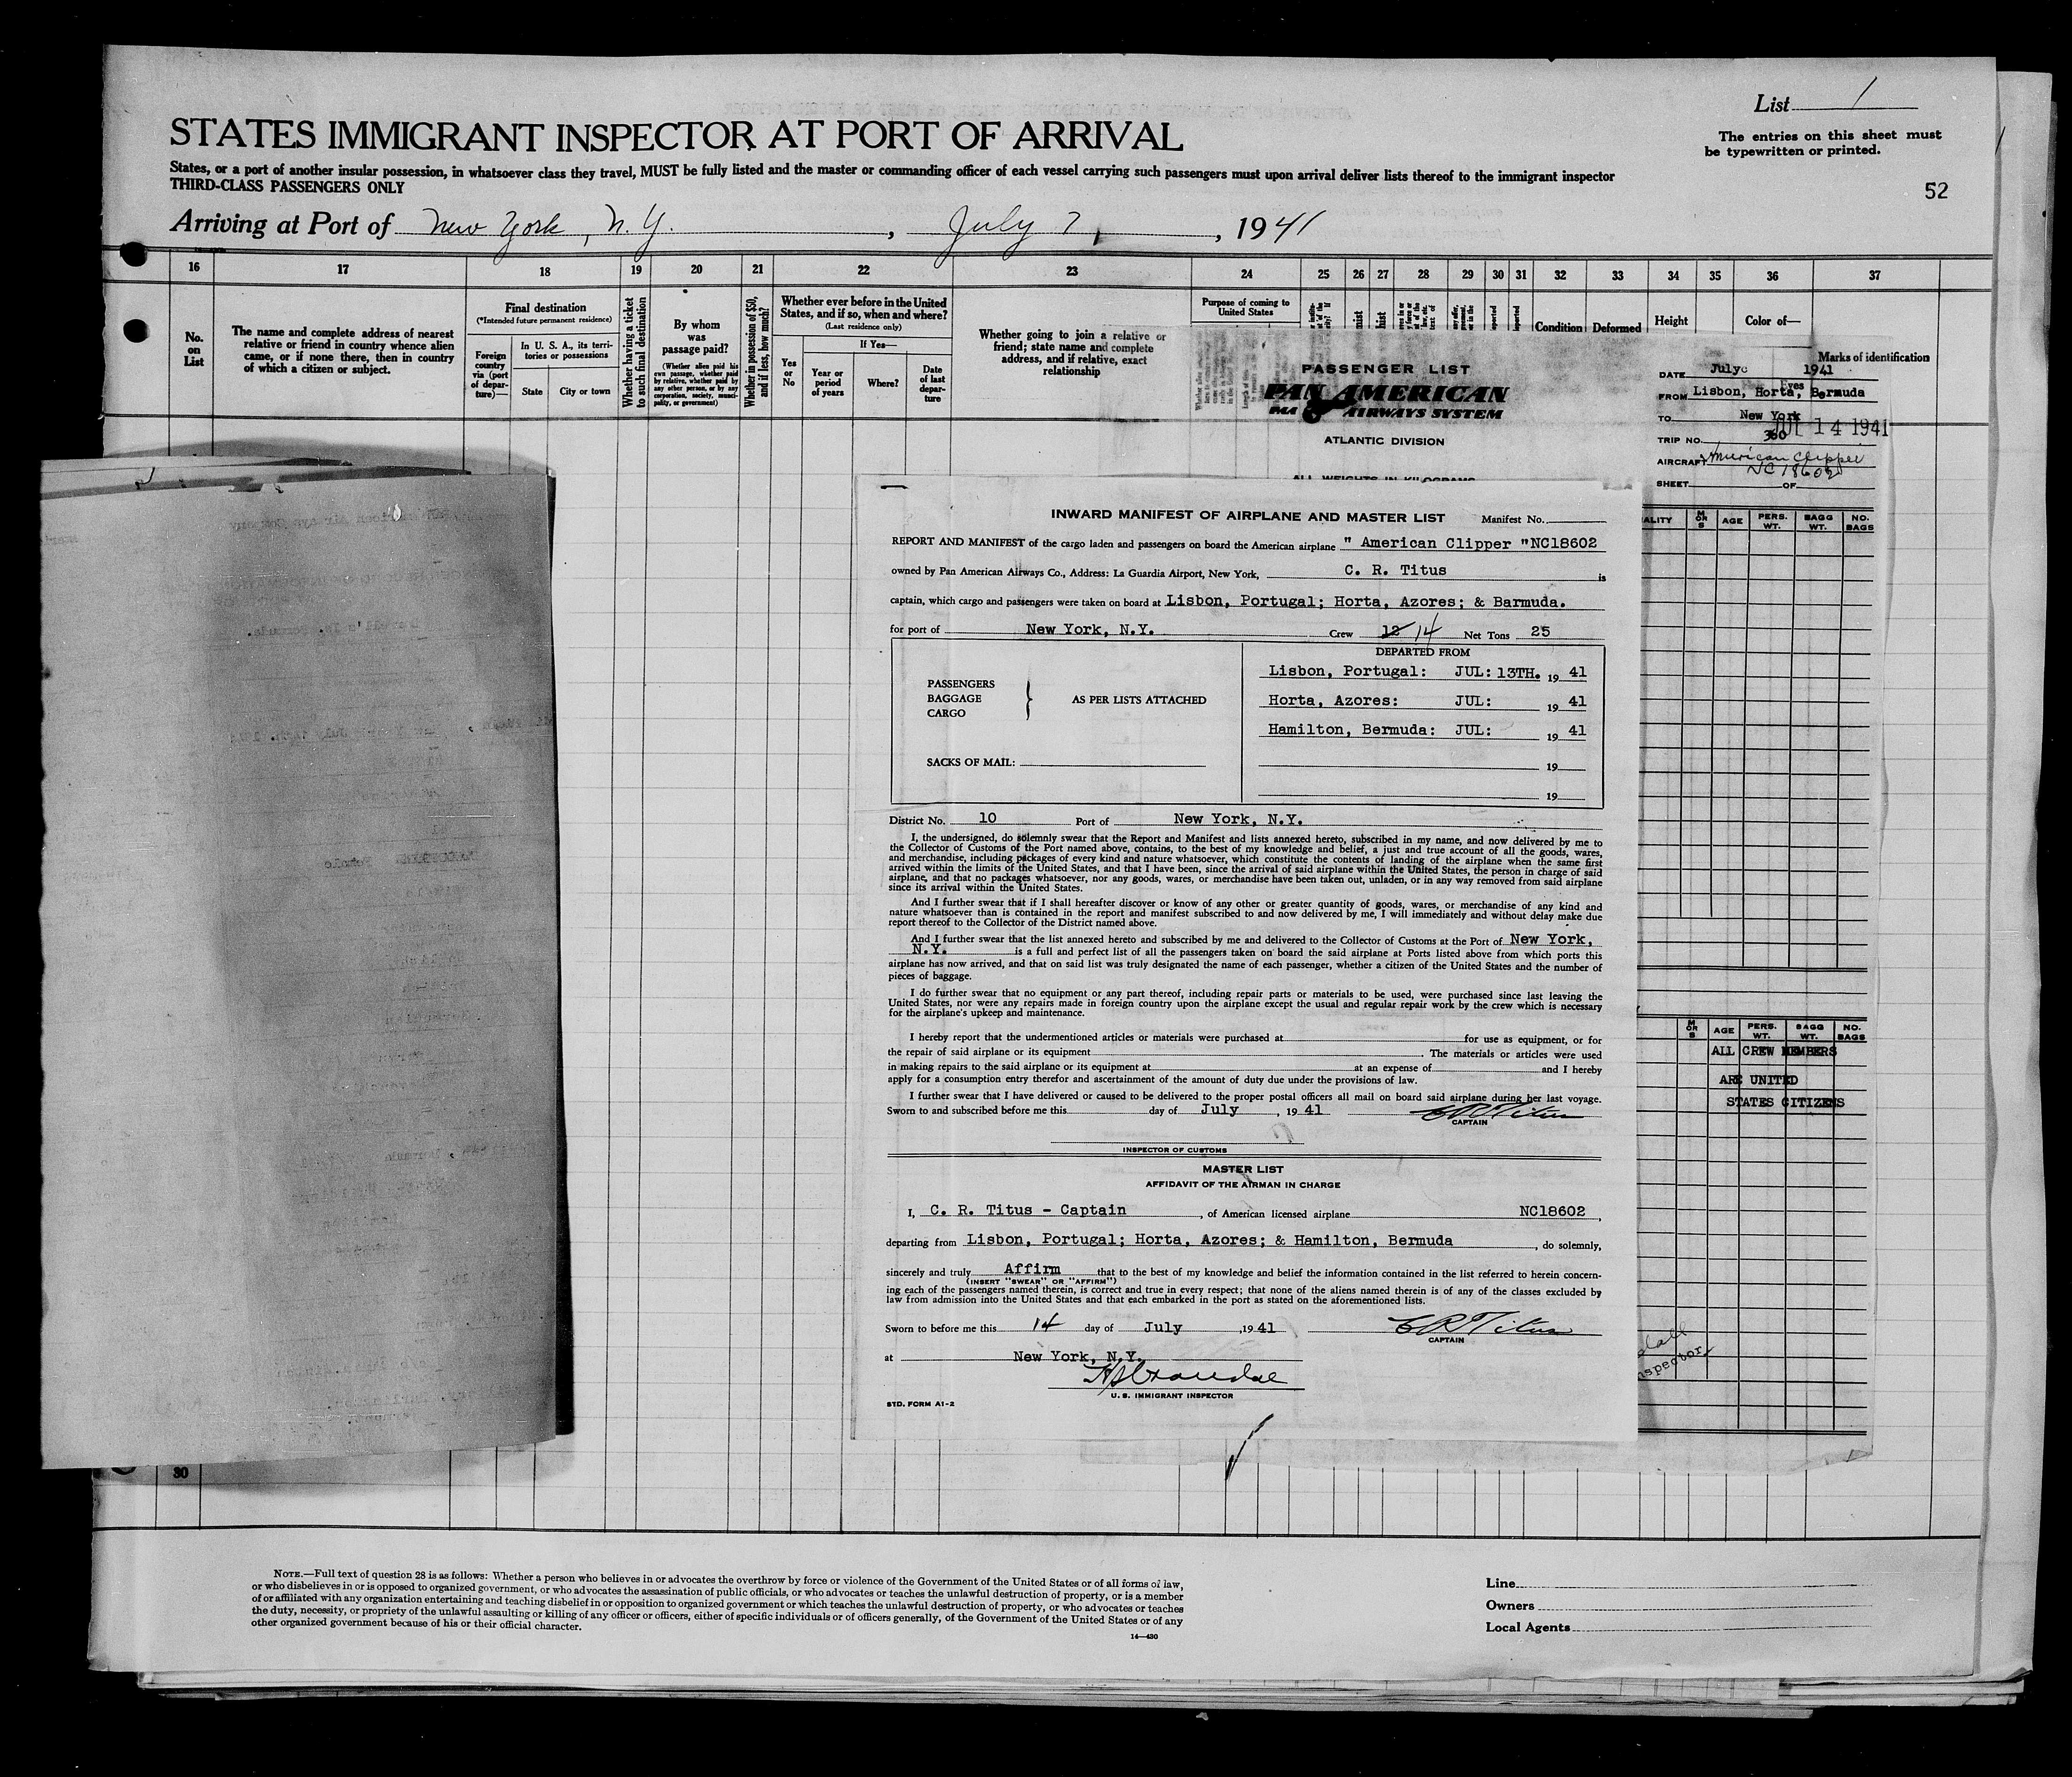 List 1
STATES IMMIGRANT INSPECTOR AT PORT OF ARRIVAL
The entries on this sheet must
be typewritten or printed.
States, or a port of another insular possession, in whatsoever class they travel, MUST be fully listed and the master or commanding officer of each vessel carrying such passengers must upon arrival deliver lists thereof to the immigrant inspector
THIRD-CLASS PASSENGERS ONLY
52
Arriving at Port of New York, N.Y. , July 7, , 1941
16 17 18 19 20 21 22 23 24 25 26 27 28 29 30 31 32 33 34 35 36 37
No.
on
List
The name and complete address of nearest
relative or friend in country whence alien
came, or if none there, then in country
of which a citizen or subject.
Final destination
(*Intended future permanent residence)
Foreign
country
via (port
of depar-
ture)—
In U. S. A., its terri-
tories or possessions
State
City or town
Whether having a ticket
to such final destination
By whom
was
passage paid?
(Whether alien paid his
own passage, whether paid
by relative, whether paid by
any other person, or by any
corporation, society, munici-
pality, or government)
Whether in possession of $50,
and if less, how much?
Whether ever before in the United
States, and if so, when and where?
(Last residence only)
Yes
or
No
If Yes—
Year or
period
of years
Where?
Date
of last
depar-
ture
Whether going to join a relative or
friend; state name and complete
address, and if relative, exact
relationship
Purpose of coming to
United States
Condition
Deformed
Height
Color of—
Eyes
Marks of identification
PASSENGER LIST
PAN AMERICAN
PAA AIRWAYS SYSTEM
ATLANTIC DIVISION
ALL WEIGHTS IN KILOGRAMS
DATE July 1941
FROM Lisbon, Horta, Bermuda
TO New York
JUL 14 1941
TRIP NO. 360
AIRCRAFT American Clipper
NC 18602
SHEET OF
ALITY M OR S AGE PERS. WT. BAGG WT. NO. BAGS
INWARD MANIFEST OF AIRPLANE AND MASTER LIST Manifest No.
REPORT AND MANIFEST of the cargo laden and passengers on board the American airplane " American Clipper "NC18602
owned by Pan American Airways Co., Address: La Guardia Airport, New York, C. R. Titus is
captain, which cargo and passengers were taken on board at Lisbon, Portugal; Horta, Azores; & Barmuda.
for port of New York, N.Y. Crew 12 14 Net Tons 25
DEPARTED FROM
PASSENGERS
BAGGAGE
CARGO
AS PER LISTS ATTACHED
Lisbon, Portugal: JUL: 13TH. 19 41
Horta, Azores: JUL: 19 41
Hamilton, Bermuda: JUL: 19 41
SACKS OF MAIL:
19
19
District No. 10 Port of New York, N.Y.
I, the undersigned, do solemnly swear that the Report and Manifest and lists annexed hereto, subscribed in my name, and now delivered by me to
the Collector of Customs of the Port named above, contains, to the best of my knowledge and belief, a just and true account of all the goods, wares,
and merchandise, including packages of every kind and nature whatsoever, which constitute the contents of landing of the airplane when the same first
arrived within the limits of the United States, and that I have been, since the arrival of said airplane within the United States, the person in charge of said
airplane, and that no packages whatsoever, nor any goods, wares, or merchandise have been taken out, unladen, or in any way removed from said airplane
since its arrival within the United States.
And I further swear that if I shall hereafter discover or know of any other or greater quantity of goods, wares, or merchandise of any kind and
nature whatsoever than is contained in the report and manifest subscribed to and now delivered by me, I will immediately and without delay make due
report thereof to the Collector of the District named above.
And I further swear that the list annexed hereto and subscribed by me and delivered to the Collector of Customs at the Port of New York,
N.Y. is a full and perfect list of all the passengers taken on board the said airplane at Ports listed above from which ports this
airplane has now arrived, and that on said list was truly designated the name of each passenger, whether a citizen of the United States and the number of
pieces of baggage.
I do further swear that no equipment or any part thereof, including repair parts or materials to be used, were purchased since last leaving the
United States, nor were any repairs made in foreign country upon the airplane except the usual and regular repair work by the crew which is necessary
for the airplane's upkeep and maintenance.
I hereby report that the undermentioned articles or materials were purchased at for use as equipment, or for
the repair of said airplane or its equipment . The materials or articles were used
in making repairs to the said airplane or its equipment at at an expense of and I hereby
apply for a consumption entry therefor and ascertainment of the amount of duty due under the provisions of law.
I further swear that I have delivered or caused to be delivered to the proper postal officers all mail on board said airplane during her last voyage.
Sworn to and subscribed before me this day of July , 19 41 C R Titus
CAPTAIN
INSPECTOR OF CUSTOMS
M OR S AGE PERS. WT. BAGG WT. NO. BAGS
ALL CREW MEMBERS
ARE UNITED
STATES CITIZENS
MASTER LIST
AFFIDAVIT OF THE AIRMAN IN CHARGE
I, C. R. Titus - Captain , of American licensed airplane NC18602 ,
departing from Lisbon, Portugal; Horta, Azores; & Hamilton, Bermuda , do solemnly,
sincerely and truly Affirm that to the best of my knowledge and belief the information contained in the list referred to herein concern-
(INSERT "SWEAR" OR "AFFIRM")
ing each of the passengers named therein, is correct and true in every respect; that none of the aliens named therein is of any of the classes excluded by
law from admission into the United States and that each embarked in the port as stated on the aforementioned lists.
Sworn to before me this 14 day of July ,19 41 C R Titus
CAPTAIN
at New York, N.Y.
U. S. IMMIGRANT INSPECTOR
STD. FORM A1-2
nspector
30
NOTE.—Full text of question 28 is as follows: Whether a person who believes in or advocates the overthrow by force or violence of the Government of the United States or of all forms of law,
or who disbelieves in or is opposed to organized government, or who advocates the assassination of public officials, or who advocates or teaches the unlawful destruction of property, or is a member
of or affiliated with any organization entertaining and teaching disbelief in or opposition to organized government or which teaches the unlawful destruction of property, or who advocates or teaches
the duty, necessity, or propriety of the unlawful assaulting or killing of any officer or officers, either of specific individuals or of officers generally, of the Government of the United States or of any
other organized government because of his or their official character.
14—430
Line
Owners
Local Agents